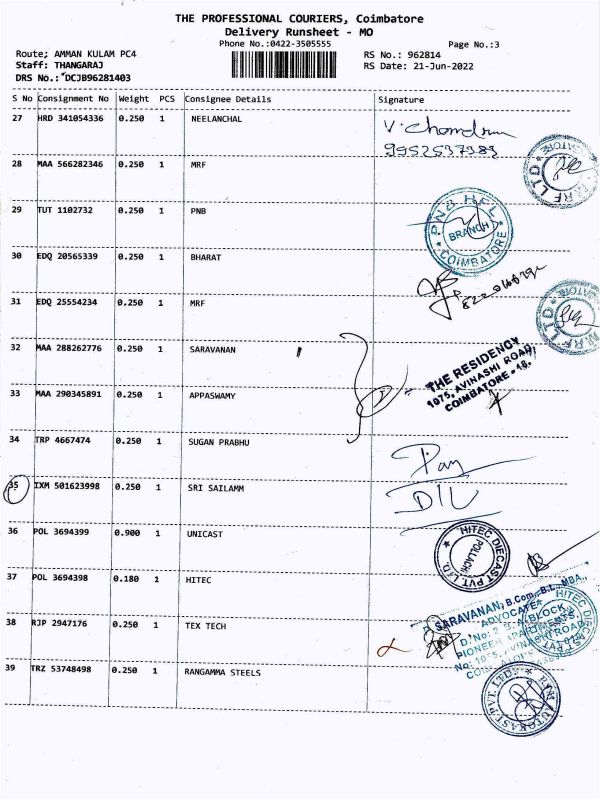 THE PROFESSIONAL COURIERS, Coimbatore
Delivery Runsheet - MO
Phone No.:0422-3505555
Page No.:3
Route; AMMAN KULAM PC4
RS No.: 962814
Staff: THANGARAJ
RS Date: 21-Jun-2022
DRS No.: DCJB96281403
S No Consignment No Weight PCS Consignee Details Signature
27 HRD 341054336 0.250 1 NEELANCHAL
V. Chandran
28 MAA 566282346 0.250 1 MRF
MRF LTD
29 TUT 1102732 0.250 1 PNB
PNB HFL
BRANCH
COIMBATORE
30 EDQ 20565339 0.250 1 BHARAT
31 EDQ 25554234 0.250 1 MRF
MRF LTD
32 MAA 288262776 0.250 1 SARAVANAN
THE RESIDENCY
1075, AVINASHI ROAD,
COIMBATORE - 18.
33 MAA 290345891 0.250 1 APPASWAMY
34 TRP 4667474 0.250 1 SUGAN PRABHU
35 IXM 501623998 0.250 1 SRI SAILAMM
36 POL 3694399 0.900 1 UNICAST
HITEC DIECAST PVT. LTD.
POLLACHI
37 POL 3694398 0.180 1 HITEC
SARAVANAN, B.Com., B.L., MBA.,
ADVOCATE
PIONEER APARTMENTS,
No: 1075, AVINASHI ROAD,
HITEC DIECAST
38 RJP 2947176 0.250 1 TEX TECH
39 TRZ 53748498 0.250 1 RANGAMMA STEELS
AUTOKAST PVT. LTD.